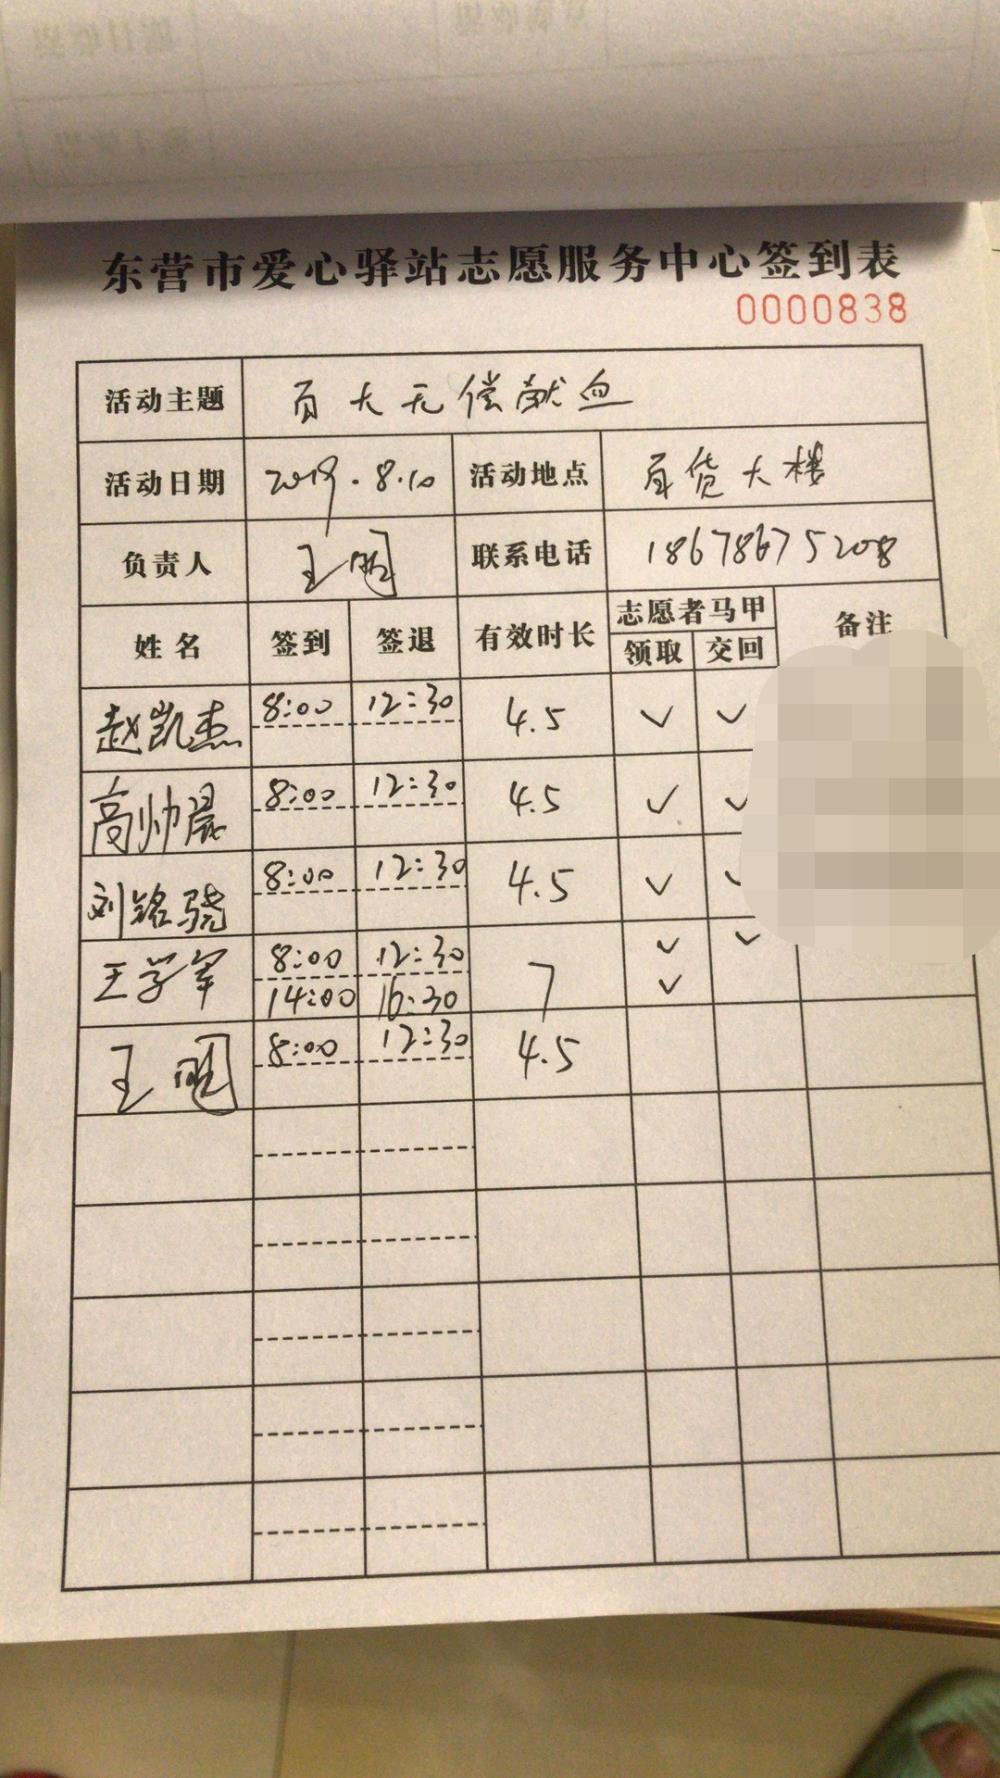 东营市爱心驿站志愿服务中心签到表
0000838
活动主题 百大无偿献血
活动日期 2019.8.10 活动地点 百货大楼
负责人 王 联系电话 18678675208
姓名 签到 签退 有效时长 志愿者马甲 备注
领取 交回
赵凯杰 8:00 12:30 4.5 ✓ ✓
高帅晨 8:00 12:30 4.5 ✓ ✓
刘铭骁 8:00 12:30 4.5 ✓ ✓
王学军 8:00 12:30 7 ✓ ✓
14:00 16:30 ✓
王 8:00 12:30 4.5